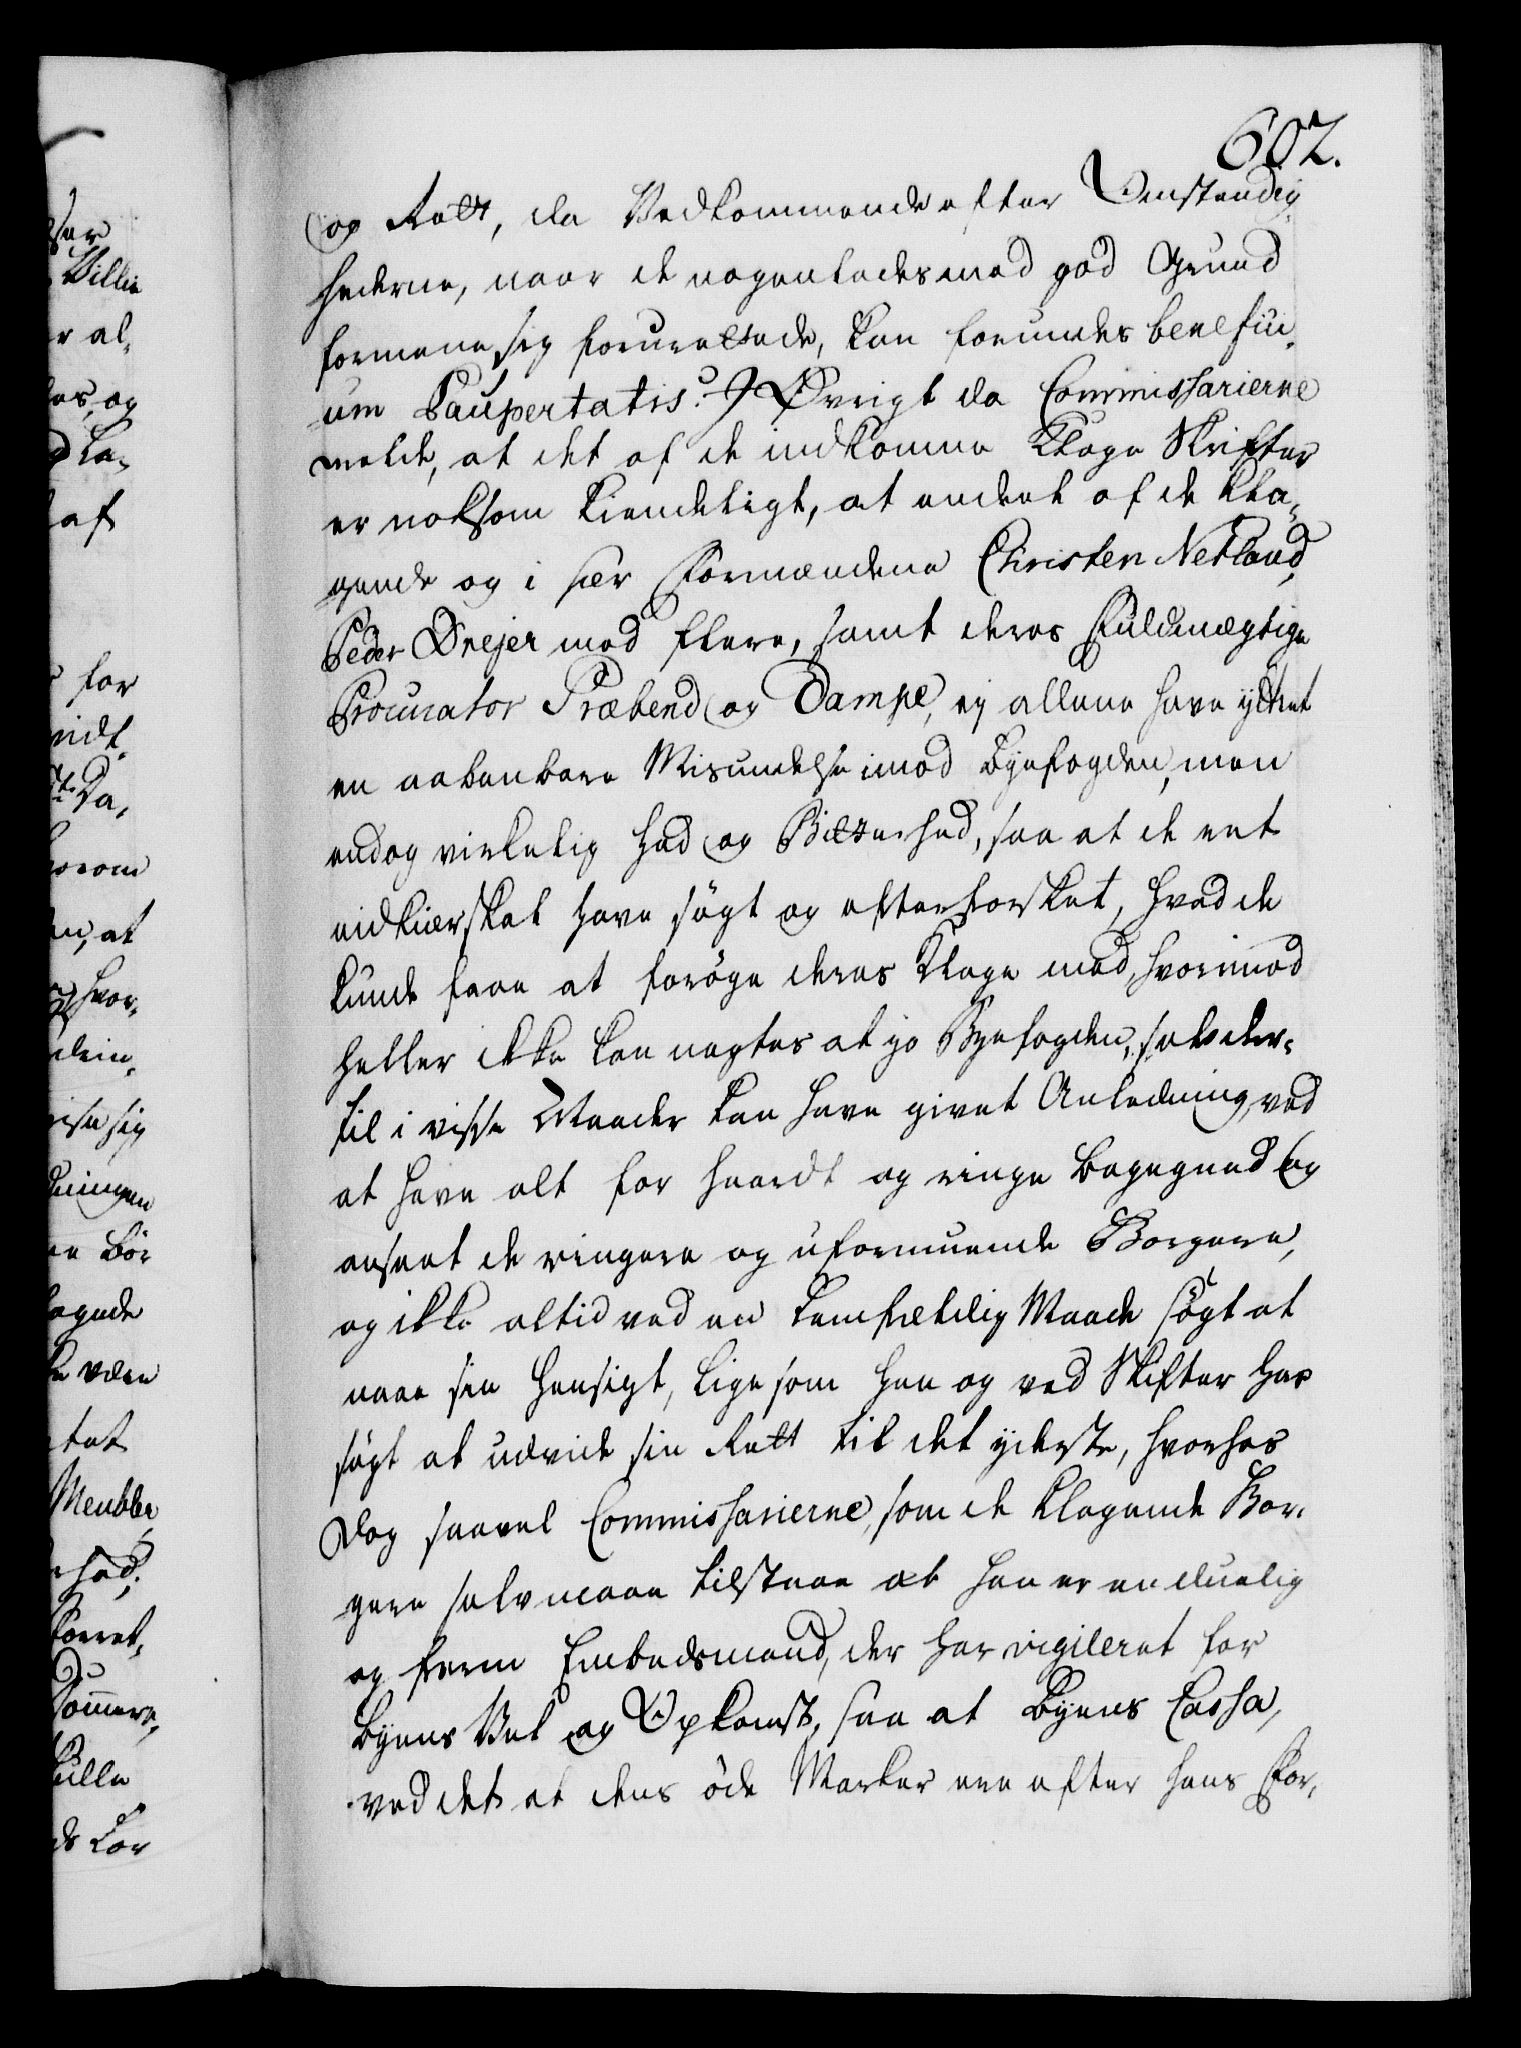 602.
og Rett, da Vedkommende efter Omstændig
hederne, naar de nogenledes med god Grund
formene sig forurettede, kan forundes benefici¬
um Paupertatis. I Øvrigt da Commissarierne
melde, at det af de indkomne Klage Skrifter
er noksom kiendeligt, at endeel af de kla¬
gende og i sær Formændene Christen Netland,
Peder Drejer med flere, samt deres Fuldmægtige
Procurator Præbend og Dampe, ej allene have yttret
en aabenbare Misundelse imod Byefogden, men
endog virkelig Had og Bitterhed, saa at de ret
nidkiærskal have søgt og efterforsket, hvad de
kunde faae at forøge deres Klage med, hvorimod
heller ikke kan negtes at jo Byefogden, selv der¬
til i visse Maader kan have givet Anledning, ved
at have alt for haardt og ringe begegned og
anseet de ringere og uformuende Borgere,
og ikke altid ved en lemfældig Maade søgt at
naae sin Hensigt, lige som han og ved Skifter har
søgt at udvide sin Rett til det yderste, hvorhos
dog saavel Commissarierne, som de klagende Bor¬
gere selv maae tilstaae at han er en duelig
og ferm Embedsmand, der har vigileret for
Byens Vel og Opkomst, saa at Byens Cassa,
ved det at dens øde Marker ere efter hans For¬